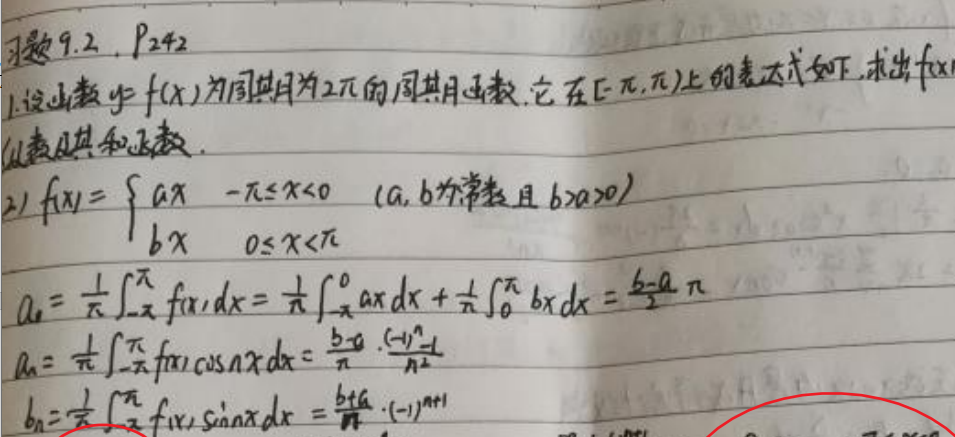 习题9.2. P242
1.设函数 y=f(x)为周期为2π的周期函数.它在[-π,π)上的表达式如下.求出f(x)
级数及其和函数.
2) f(x)= { ax -π≤x<0 (a,b为常数且b>a>0)
bx 0≤x<π
a₀ = 1/π ∫_{-π}^{π} f(x)dx = 1/π ∫_{-π}^{0} ax dx + 1/π ∫_{0}^{π} bx dx = (b-a)/2 π
aₙ = 1/π ∫_{-π}^{π} f(x) cosnx dx = (b-a)/π · ((-1)ⁿ-1)/n²
bₙ = 1/π ∫_{-π}^{π} f(x) sinnx dx = (b+a)/n · (-1)ⁿ⁺¹